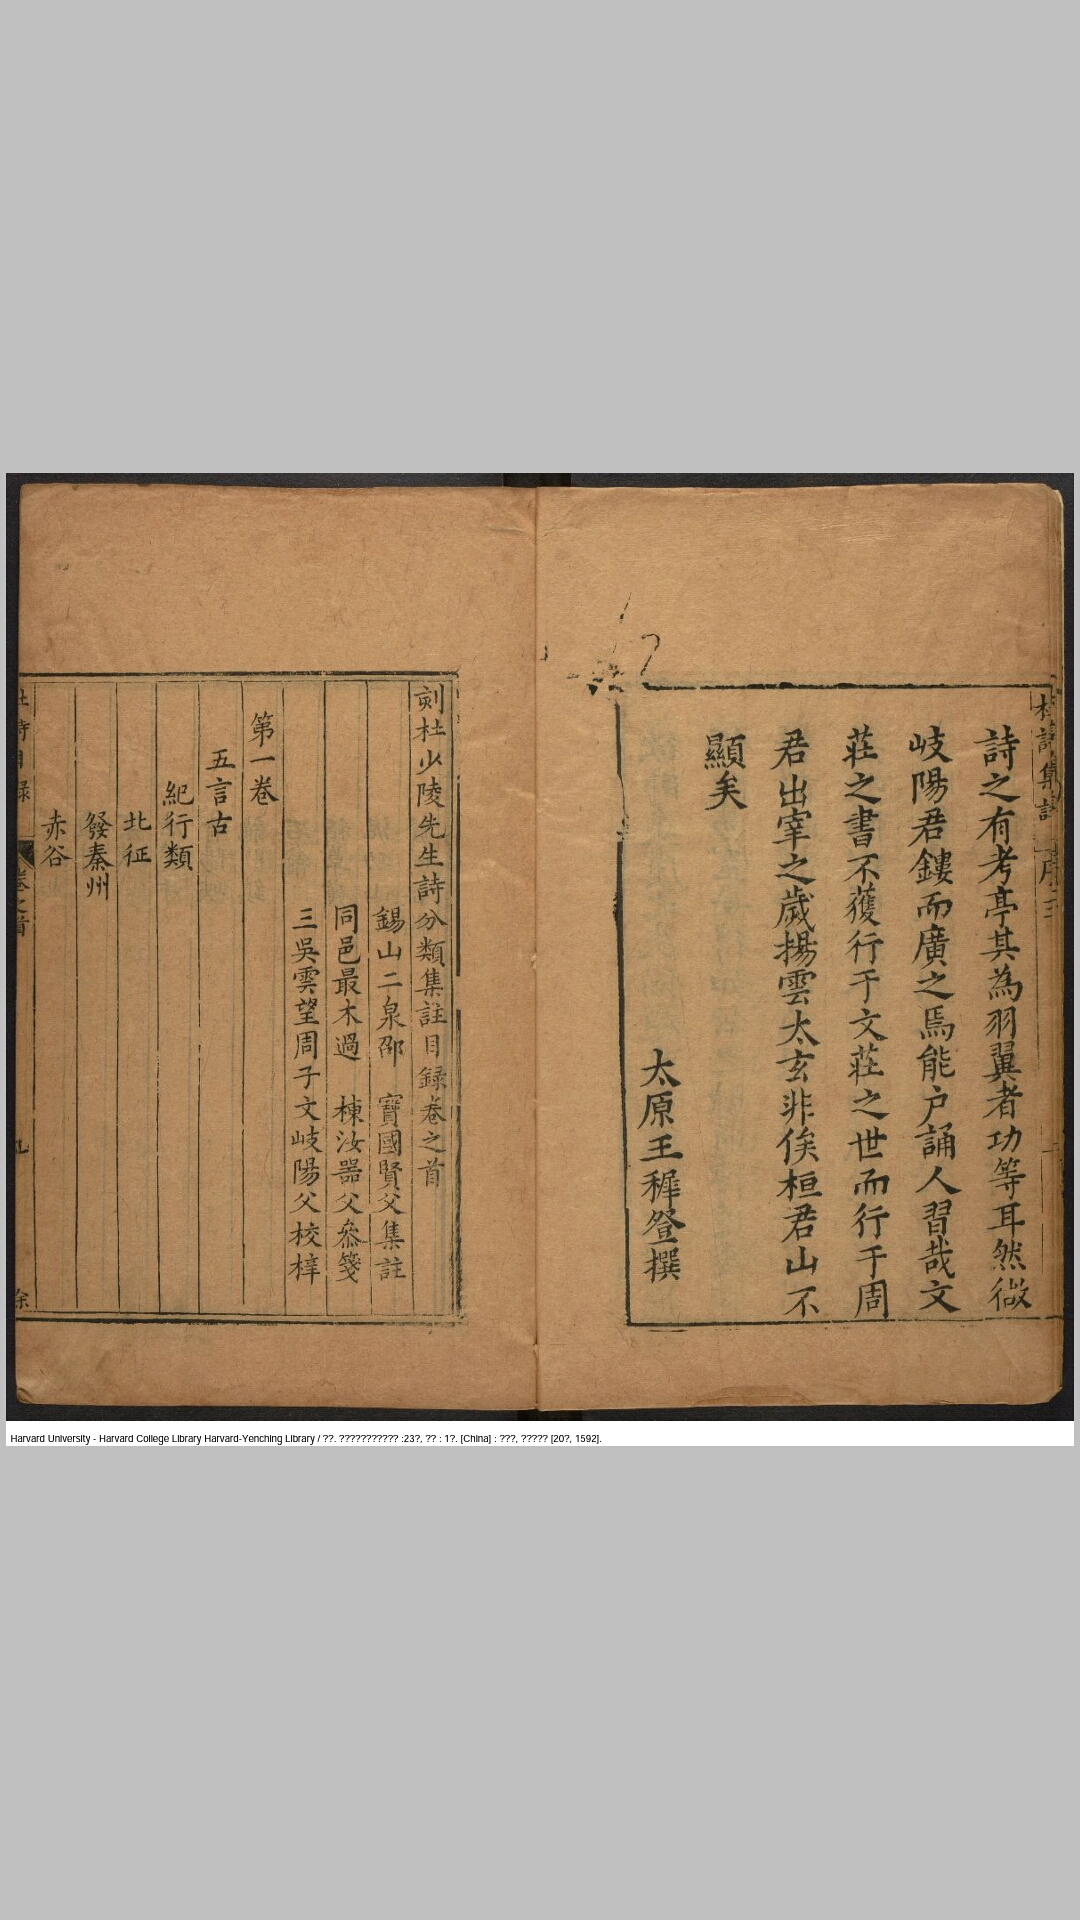 詩之有考亭其為羽翼者功等耳然微
岐陽君鏤而廣之焉能户誦人習哉文
莊之書不獲行于文莊之世而行于周
君出宰之歲揚雲太玄非俟桓君山不
顯矣
太原王穉登撰
刻杜少陵先生詩分類集註目録卷之首
錫山二泉邵 寶國賢父集註
同邑最木過 棟汝噐父叅箋
三吳雲望周子文岐陽父校梓
第一卷
五言古
紀行類
北征
發秦州
赤谷
Harvard University - Harvard College Library Harvard-Yenching Library / ??. ??????????? :23?, ?? : 1?. [China] : ???, ????? [20?, 1592].